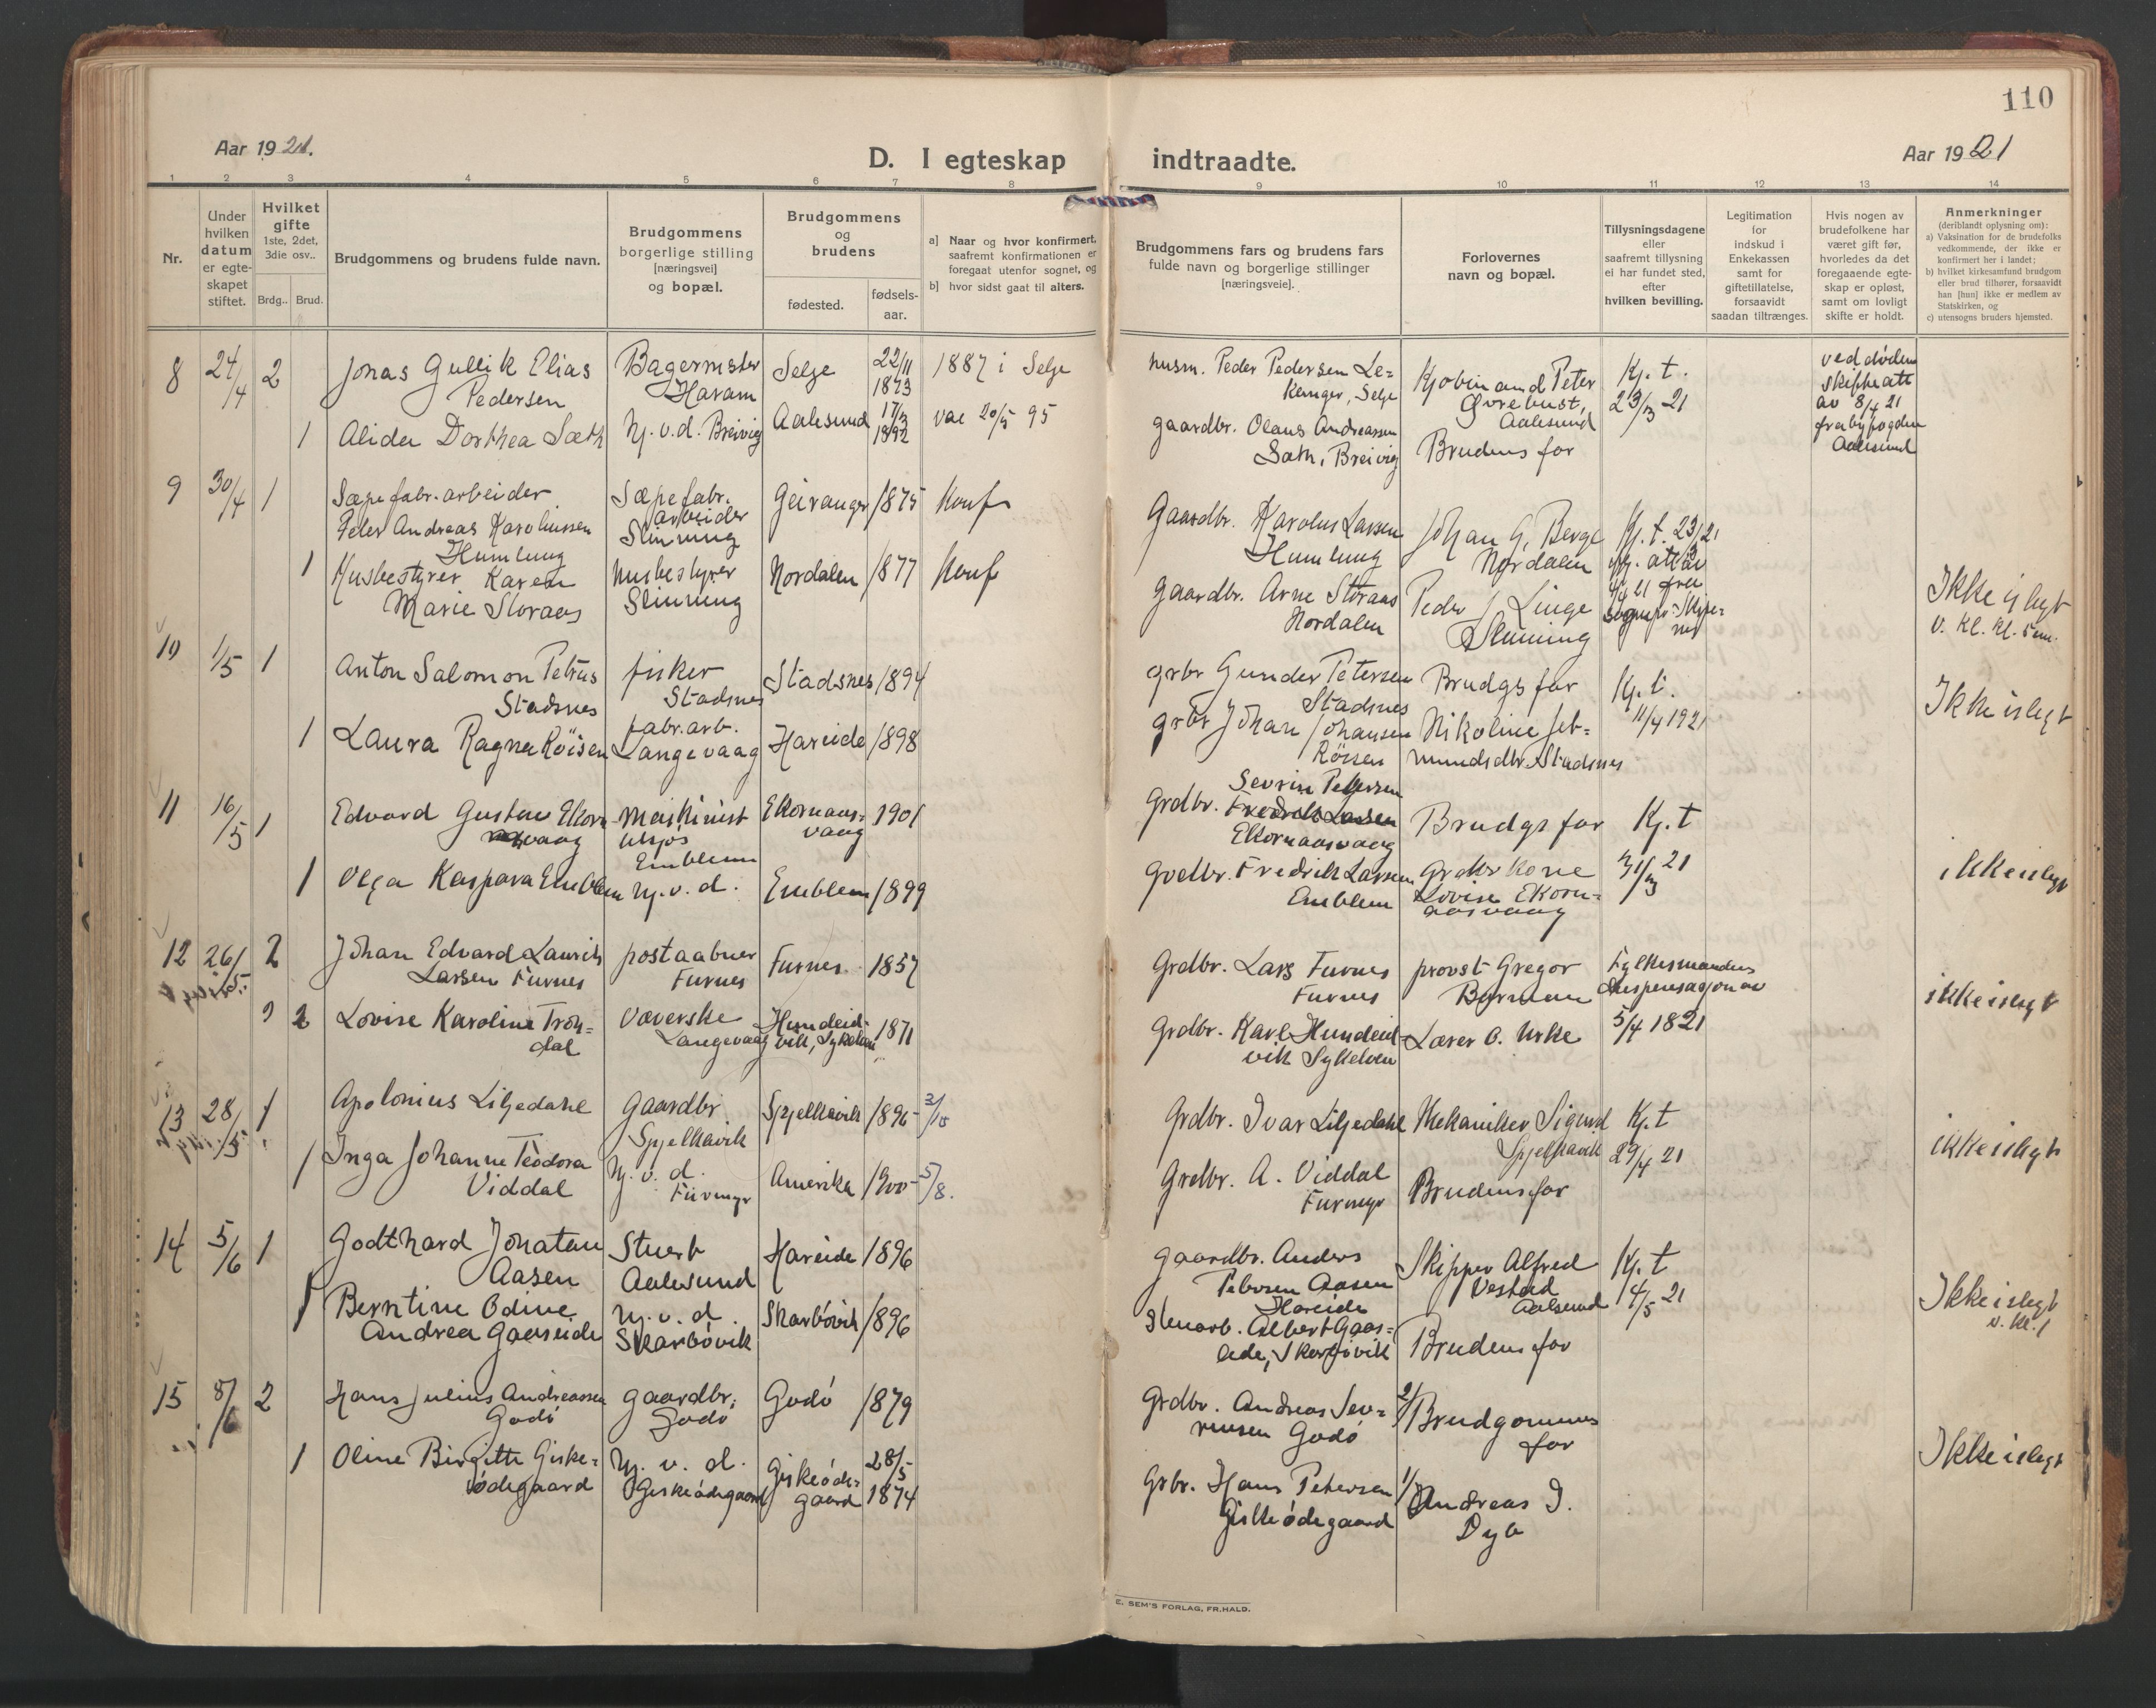 110
Aar 1921.
D. I egteskap indtraadte.
Aar 1921
1 2 3 4 5 6 7 8 9 10 11 12 13 14
Nr.
Under
hvilken
datum
er egte-
skapet
stiftet.
Hvilket
gifte
1ste, 2det,
3die osv..
Brdg.. Brud.
Brudgommens og brudens fulde navn.
Brudgommens
borgerlige stilling
[næringsvei]
og bopæl.
Brudgommens
og
brudens
fødested.
fødsels-
aar.
a] Naar og hvor konfirmert,
saafremt konfirmationen er
foregaat utenfor sognet, og
b] hvor sidst gaat til alters.
Brudgommens fars og brudens fars
fulde navn og borgerlige stillinger
[næringsveie].
Forlovernes
navn og bopæl.
Tillysningsdagene
eller
saafremt tillysning
ei har fundet sted,
efter
hvilken bevilling.
Legitimation
for
indskud i
Enkekassen
samt for
giftetillatelse,
forsaavidt
saadan tiltrænges.
Hvis nogen av
brudefolkene har
været gift før,
hvorledes da det
foregaaende egte-
skap er opløst,
samt om lovligt
skifte er holdt.
Anmerkninger
(deriblandt oplysning om):
a) Vaksination for de brudefolks
vedkommende, der ikke er
konfirmert her i landet;
b) hvilket kirkesamfund brudgom
eller brud tilhører, forsaavidt
han [hun] ikke er medlem av
Statskirken, og
c) utensogns bruders hjemsted.
8 24/4 2 Jonas Gullik Elias
Pedersen
Bagermester
Haram
Selje 22/11
1873
1887 i Selje
husm. Peder Pedersen Le=
kanger, Selje
Kjøbmand Peter
Øvrebust,
Aalesund
Kj. t.
23/3 21
ved døden
skifteatt
av 8/4 21
fra byfogden
Aalesund
1 Alida Dorthea Sæth
Hj.v.d. Breivig
Aalesund
1892
vac 20/5 95
gaardbr. Olaus Andreassen
Sæth, Breivig
Brudens far
9 30/4 1 Sæpefabr.arbeider
Peter Andreas Karolussen
Humlung
Sæpefabr.
arbeider
Slinning
Geiranger 1875 Konf
Gaardbr. Karolus Larsen
Humlung
Johan G. Berge
Nordalen
Kj. t. 23/3 21
1 Husbestyrer Karen
Marie Storaas
husbestyrer
Slinning
Nordalen 1877 Konf
gaardbr. Arne Storaas
Nordalen
Peder J Linge
Slinning
Ikke i slegt
10 1/5 1 Anton Salomon Petrus
Stadsnes
fisker
Stadsnes
Stadsnes 1894
grbr Gunder Petersen
Stadsnes
Brudgs far
Kj. t.
11/4 1921
Ikke i slegt
1 Laura Ragna Röisen
fabr.arb.
Langevaag
Hareide 1898
grbr Johan Johansen
Röisen
Nikoline Jet=
mundsdtr. Stadsnes
11 16/5 1 Edvard Gustav Ekorn
vaag
Maskinist
Emblem
Ekornaas=
vaag
1901
Grdbr. Sevrin Pettersen
Fredrik Larsen
Ekornaasvaag
Brudgs far
Kj. t
31/3 21
ikke i slegt
1 Olga Kaspara Emblem
Hj. v. d.
Emblem 1899
Grdbr. Fredrik Larsen
Emblem
Grdbr kone
Lovise Ekorn=
aasvaag
12 26/5 2 Johan Edvard Laurits
Larsen Furnes
postaabner
Furnes
Furnes 1857
Grdbr. Lars Furnes
Furnes
provst Gregor
Borman
Fylkesmandens
dispensasjon av
5/4 1821
ikke i slegt
2 Lovise Karoline Tron=
dal
Væverske
Langevaag
Hundeid-
vik, Sykelven
1871
Grdbr. Karl Hundeid=
vik Sykelven
Lærer O. Urke
13 28/5 1 Apolonius Liljedahl
Gaardbr
Spjelkavik
Spjelkavik 1896 3/10
Grdbr. Ivar Liljedahl
Mekaniker Sigurd
Spjelkavik
Kj. t
29/4 21
ikke i slegt
1 Inga Johanne Teodora
Viddal
Hj. v. d.
Furmyr
Amerika 1900 5/8.
Grdbr. A. Viddal
Furmyr
Brudens far
14 5/6 1 Godthard Jonatan
Aasen
Stuert
Aalesund
Hareide 1896
gaardbr. Anders
Petersen Aasen
Hareide
Skipper Alfred
Vestad
Aalesund
Kj. t
14/5 21
Ikke i slegt
v. kl. 1
1 Berntine Odine
Andrea Gaaseide
Hj. v. d.
Skarbövik
Skarbövik 1896
Stenarb. Albert Gaas=
eide, Skarbövik
Brudens far
15 8/6 2 Hans Julius Andreassen
Godö
gaardbr.
Godö
Godö 1879
Grdbr. Andreas Sev=
rinsen Godö
2/ Brudgommens
far
Ikke i slegt
1 Oline Birgitte Giske=
ødegaard
Hj. v. d.
Giskeødegaard
Giskeøde-
gaard
28/5
1874
Grbr. Hans Petersen
Giskeødegaard
1/ Andreas J.
Dyb
E. SEM'S FORLAG, FR.HALD.